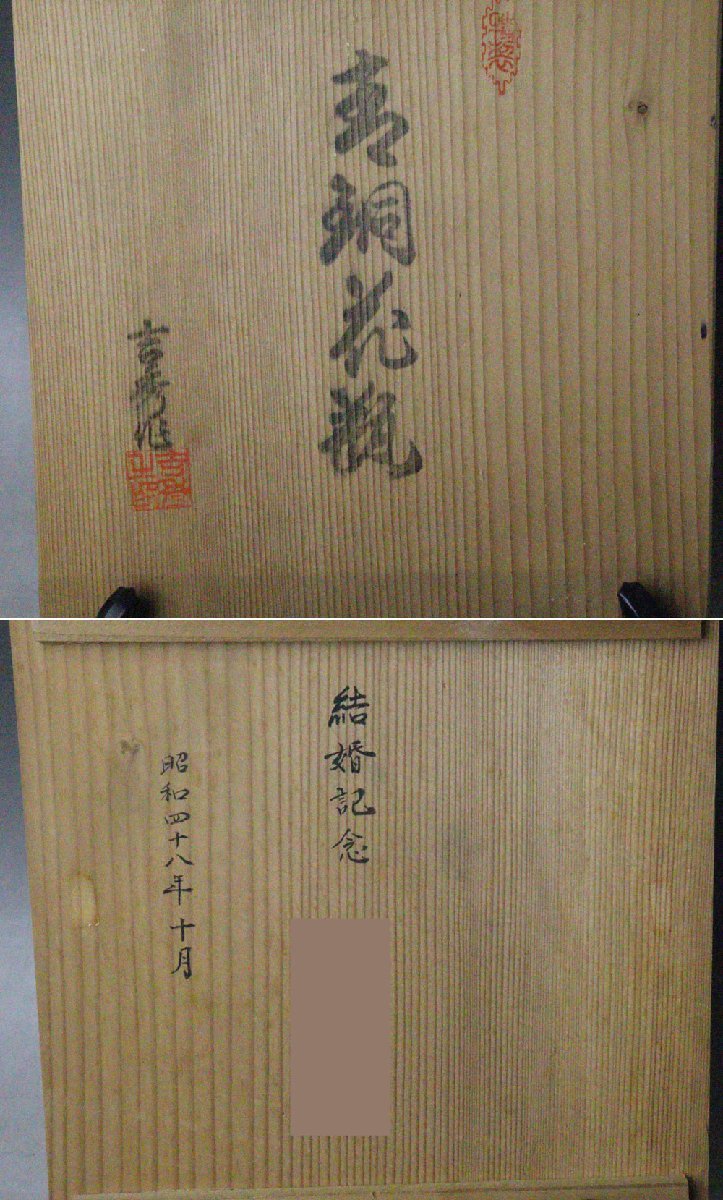 青銅花瓶
吉秀作
結婚記念
昭和四十八年十月